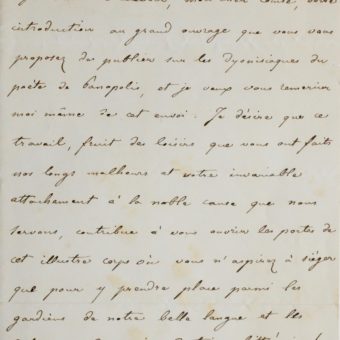 mon cher comte, votre
introduction au grand ouvrage que vous vous
proposez de publier sur les dyonisiaques du
poëte de Panopolis, et je veux vous remercier
moi même de cet envoi. Je désire que ce
travail, fruit des loisirs que vous ont faits
nos longs malheurs et votre invariable
attachement à la noble cause que nous
servons, contribue à vous ouvrir les portes de
cet illustre corps où vous n'aspirez à siéger
que pour y prendre place parmi les
gardiens de notre belle langue et les